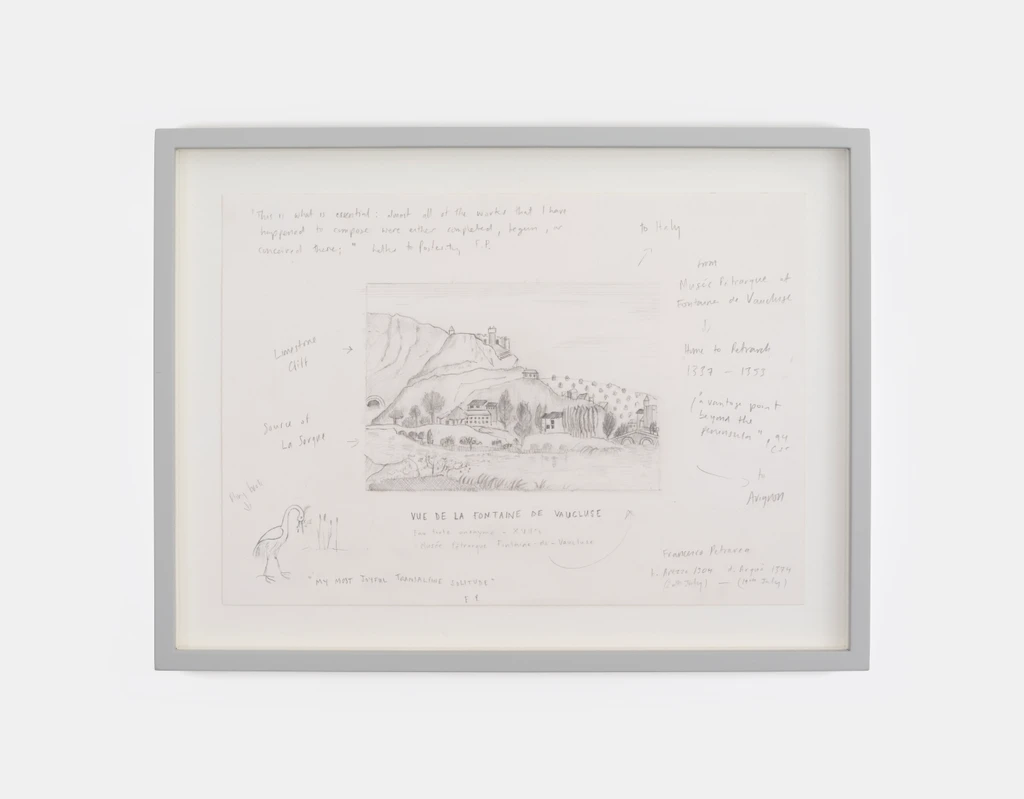 "This is what is essential: almost all of the works that I have
happened to compose were either completed, begun, or
conceived there;" Letter to Posterity, F.P.
to Italy
from
Musée Petrarque at
Fontaine de Vaucluse
Home to Petrarch
1337 – 1353
"a vantage point
beyond the
peninsula"
to
Avignon
Limestone
Cliff
Source of
La Sorgue
VUE DE LA FONTAINE DE VAUCLUSE
Musée Petrarque Fontaine-de-Vaucluse
"MY MOST JOYFUL TRANSALPINE SOLITUDE"
F P
Francesco Petrarca
b. Arezzo 1304 d. Arquà 1374
July) — (19th July)